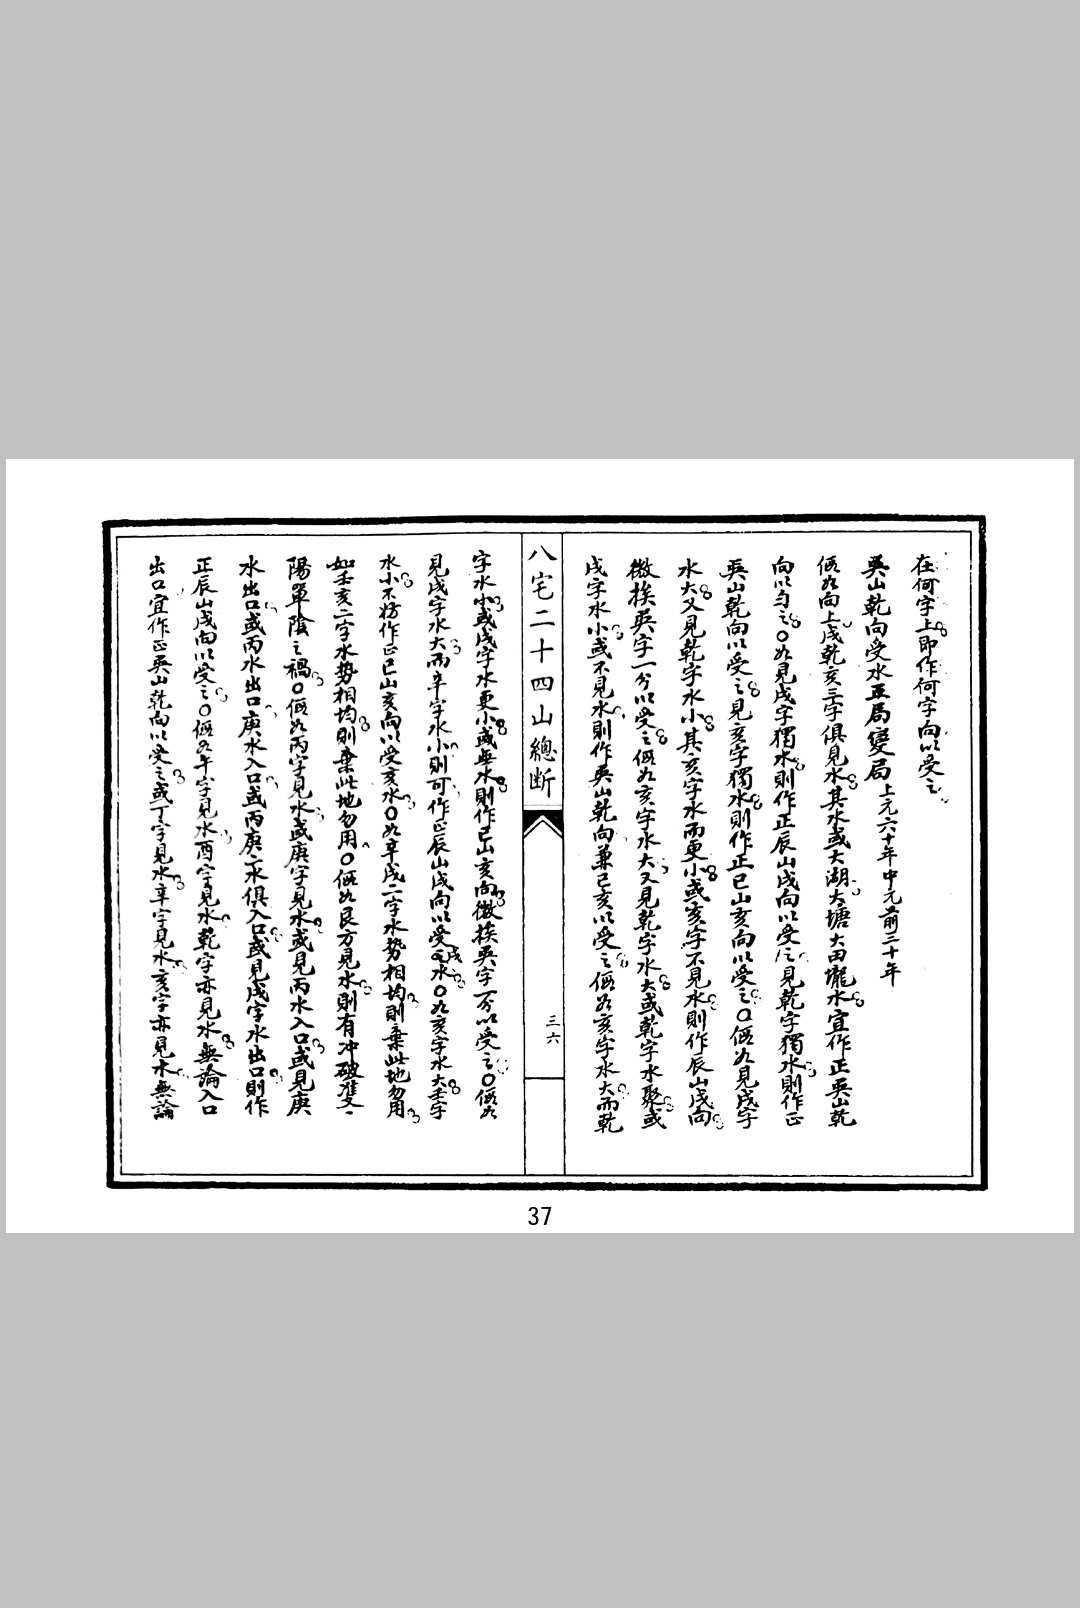 在何字上即作何字向以受之
巽山乾向受水正局變局上元六十年中元前二十年
假如向上戌乾亥三字俱見水其水或大湖大塘大田壠水宜作正巽山乾
向以勻之〇如見戌字獨水則作正辰山戌向以受之見乾字獨水則作正
巽山乾向以受之見亥字獨水則作正巳山亥向以受之〇假如見戌字
水大又見乾字水小其亥字水而更小或亥字不見水則作辰山戌向
微挨巽字一分以受之假如亥字水大又見乾字水大或乾字水聚或
戌字水小或不見水則作巽山乾向兼巳亥以受之假如亥字水大而乾
八宅二十四山總斷
三六
字水小或戌字水更小或無水則作巳山亥向微挨巽字一分以受之〇假如
見戌字水大而辛字水小則可作正辰山戌向以受戌水〇如亥字水大壬字
水小不妨作正巳山亥向以受亥水〇如辛戌二字水势相均則棄此地勿用
如壬亥二字水势相均則棄此地勿用〇假如艮方見水則有冲破雙
陽單陰之禍〇假如丙字見水或庚字見水或見丙水入口或見庚
水出口或丙水出口庚水入口或丙庚水俱入口或見戌字水出口則作
正辰山戌向以受之〇假如午字見水酉字見水乾字亦見水無論入口
出口宜作正巽山乾向以受之或丁字見水辛字見水亥字亦見水無論
37